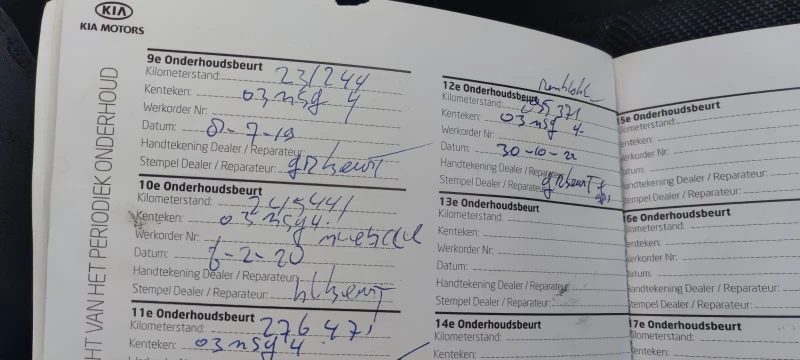 KIA
KIA MOTORS
HT VAN HET PERIODIEK ONDERHOUD
9e Onderhoudsbeurt
Kilometerstand: 231244
Kenteken: 03 nsg 4
Werkorder Nr:
Datum: 8-7-19
Handtekening Dealer / Reparateur:
Stempel Dealer / Reparateur:
10e Onderhoudsbeurt
Kilometerstand: 245441
Kenteken: 03 nsg 4
Werkorder Nr:
Datum: 6-2-20
Handtekening Dealer / Reparateur:
Stempel Dealer / Reparateur:
11e Onderhoudsbeurt
Kilometerstand: 276471
Kenteken: 03 nsg 4
12e Onderhoudsbeurt
Kilometerstand:
Kenteken: 03 nsg 4
Werkorder Nr:
Datum: 30-10-21
Handtekening Dealer / Reparateur:
Stempel Dealer / Reparateur:
13e Onderhoudsbeurt
Kilometerstand:
Kenteken:
Werkorder Nr:
Datum:
Handtekening Dealer / Reparateur:
Stempel Dealer / Reparateur:
14e Onderhoudsbeurt
Kilometerstand:
Kenteken:
15e Onderhoudsbeurt
Kilometerstand:
Kenteken:
Werkorder Nr:
Datum:
Handtekening Dealer / Reparateur:
Stempel Dealer / Reparateur:
16e Onderhoudsbeurt
Kilometerstand:
Kenteken:
Werkorder Nr:
Datum:
Handtekening Dealer / Reparateur:
Stempel Dealer / Reparateur:
17e Onderhoudsbeurt
Kilometerstand:
Kenteken: